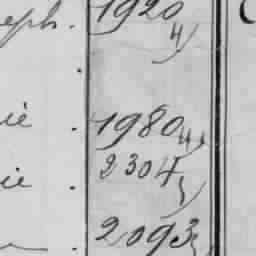 eph. 1920
4)
ie . 1980 4)
ie . 2304
2093